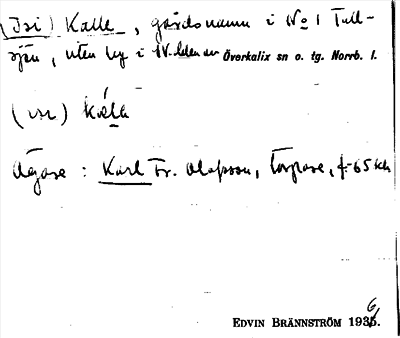 (Isi) Kalle, gårdsnamn i No 1 Tull-
sjön, uten by i Överkalix sn o. tg. Norrb. l.
(isi) kalle
Ägare: Karl Fr. Olofsson, torpare, f. 65
EDVIN BRÄNNSTRÖM 1936.